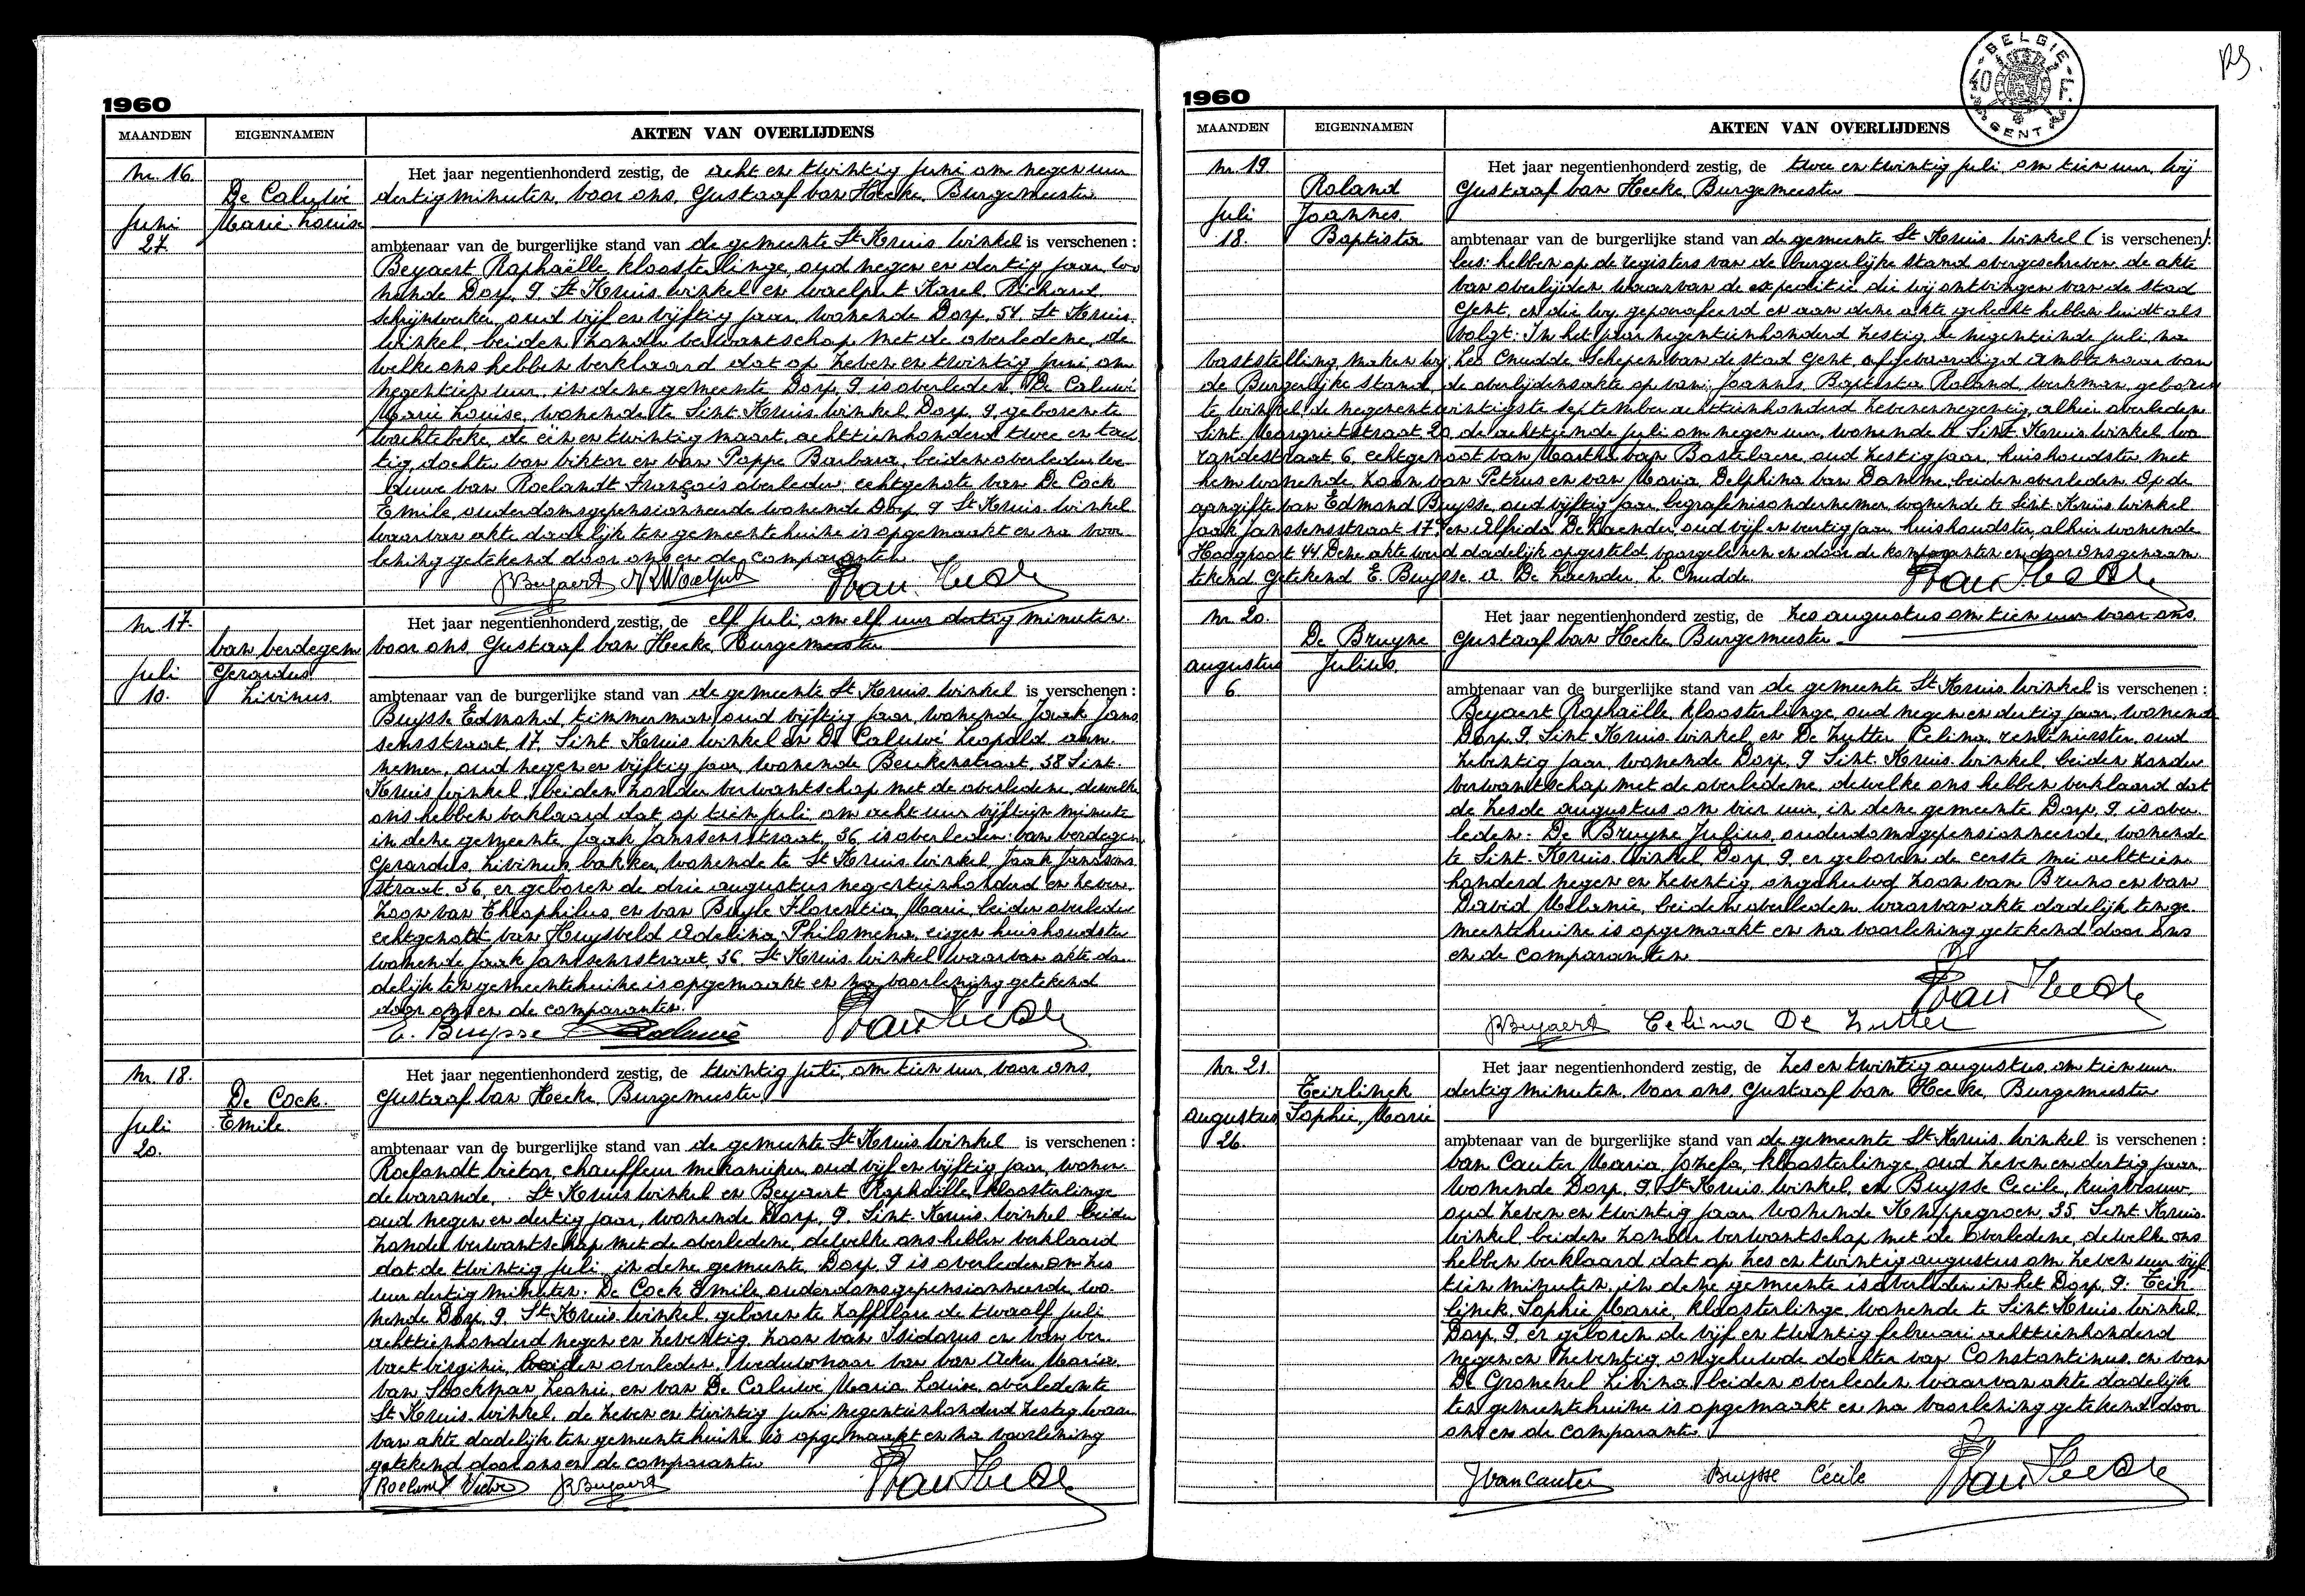 1960
MAANDEN EIGENNAMEN AKTEN VAN OVERLIJDENS
Nr. 16. Het jaar negentienhonderd zestig, de acht en twintig Juni om negen uur
De Caluwé dertig minuten, voor ons, Gustaaf van Hecke, Burgemeester
Juni Marie-Louise
27. ambtenaar van de burgerlijke stand van de gemeente St Kruis-Winkel is verschenen:
Beyaert Raphaëlle, kloosterlinge, oud negen en dertig jaar, wo
nende Dorp, 9 St Kruis-Winkel en Waelput Karel, Richard,
schrijnwerker, oud vijf en vijftig jaar, wonende Dorp, 54, St Kruis-
Winkel, beiden zonder verwantschap met de overledene, de
welke ons hebben verklaard dat op zeven en twintig Juni om
negentien uur, in dene gemeente Dorp, 9 is overleden: De Caluwé
Marie Louise, wonende te Sint-Kruis-Winkel, Dorp, 9, geboren te
Wachtebeke, de één en twintig maart, achttienhonderd twee en tach
tig, dochter van Viktor en van Poppe Barbara, beiden overleden, we-
duwe van Roelandt François overleden; echtgenote van De Cock
Emile, ouderdomsgepensionneerde wonende Dorp, 9 St Kruis-Winkel
waarvan akte dadelijk ten gemeentehuize is opgemaakt en na voor
lezing getekend door ons en de comparanten.
RBeyaert
Nr. 17. Het jaar negentienhonderd zestig, de elf Juli, om elf uur dertig minuten
Van Verdegem voor ons, Gustaaf van Hecke, Burgemeester
Juli Gerardus
10. Livinus. ambtenaar van de burgerlijke stand van de gemeente St Kruis-Winkel is verschenen:
Buysse Edmond, timmerman, oud vijftig jaar, wonende Jaak Jans
sensstraat, 17, Sint-Kruis-Winkel en De Caluwé Leopold, aan-
nemer, oud negen en vijftig jaar, wonende Beukenstraat, 38 Sint-
Kruis-Winkel, beiden zonder verwantschap met de overledene, dewelke
ons hebben verklaard dat op tien Juli om acht uur vijftien minute
in dene gemeente, Jaak Janssensstraat, 36 is overleden: Van Verdegem
Gerardus, Livinus, bakker, wonende te St Kruis-Winkel, Jaak Janssens
straat, 36, en geboren de drie augustus negentienhonderd en zeven,
zoon van Theophilus, en van Buyle Florentia, Marie, beiden overleden
echtgenoot van Huysveld Adelina Philomena, eigen huishoudster
wonende Jaak Janssensstraat, 36, St Kruis-Winkel waarvan akte da-
delijk ten gemeentehuize is opgemaakt en na voorlezing getekend
door ons en de comparanten.
E. Buysse
Nr. 18. Het jaar negentienhonderd zestig, de twintig juli, om tien uur, voor ons,
De Cock. Gustaaf van Hecke, Burgemeester
Juli Emile
20. ambtenaar van de burgerlijke stand van de gemeente St Kruis-Winkel is verschenen:
Roelandt Victor, chauffeur mekanieker, oud vijf en vijftig jaar, wonen-
de Warande, St Kruis-Winkel en Beyaert Raphaëlle, kloosterlinge
oud negen en dertig jaar, wonende Dorp, 9. Sint-Kruis-Winkel beiden
zonder verwantschap met de overledene, dewelke ons hebben verklaard
dat de twintig Juli, in dene gemeente, Dorp, 9 is overleden om zes
uur dertig minuten: De Cock Emile, ouderdomsgepensionneerde, wo-
nende Dorp, 9. St Kruis-Winkel, geboren te Zaffelare de twaalf Juli
achttienhonderd negen en zeventig, zoon van Isidorus en van Ver-
vaet Virginie, beiden overleden, weduwnaar van Van Acker Maria
van Stockman Leonie, en van De Caluwé Maria Louise, overleden te
St Kruis-Winkel, de zeven en twintig Juni negentienhonderd zestig waar-
van akte dadelijk ten gemeentehuize is opgemaakt en na voorlezing
getekend door ons en de comparanten
Roelandt Victor RBeyaert
1960
MAANDEN EIGENNAMEN AKTEN VAN OVERLIJDENS
BELGIE GENT
Nr. 19 Het jaar negentienhonderd zestig, de twee en twintig Juli om tien uur, wij
Roland Gustaaf van Hecke, Burgemeester
Juli Joannes
18. Baptista ambtenaar van de burgerlijke stand van de gemeente St Kruis-Winkel (is verschenen):
lees: hebben op de registers van de burgerlijke stand overgeschreven de akte
van overlijden waarvan de expeditie die wij ontvingen van de stad
Gent, en die wij geparafeerd en aan dene akte gehecht hebben luidt als
volgt: In het jaar negentienhonderd zestig, de negentiende juli, na
vaststelling, maken wij, Leo Cnudde, Schepen van de stad Gent, afgevaardigd ambtenaar van
de Burgerlijke stand, de overlijdensakte op van: Joannes, Baptista Roland, werkman, geboren
te Winkel de negenentwintigste september achttienhonderd zevenennegentig, alhier overleden
Sint-Margrietstraat 20, de achttiende juli om negen uur, wonende te Sint-Kruis-Winkel Wa
randestraat, 6, echtgenoot van Martha Van Bastelaere, oud zestig jaar, huishoudster, met
hem wonende, zoon van Petrus en van Maria, Delphina Van Damme, beiden overleden. Op de
aangifte van Edmond Buysse, oud vijftig jaar, begrafenisondernemer, wonende te Sint-Kruis-Winkel
Jaak Janssensstraat 17, en Alfrida De Laender, oud vijf en veertig jaar, huishoudster, alhier wonende
Hoogpoort 44. Dene akte werd dadelijk opgesteld, voorgelezen en door de komparanten en door ons genaam-
tekend. Getekend E. Buysse A. De Laender, L. Cnudde.
Nr. 20. Het jaar negentienhonderd zestig, de zes augustus om tien uur voor ons
De Bruyne Gustaaf van Hecke, Burgemeester
augustus Julius.
6. ambtenaar van de burgerlijke stand van de gemeente St Kruis-Winkel is verschenen:
Beyaert Raphaëlle, kloosterlinge, oud negen en dertig jaar, wonende
Dorp, 9. Sint-Kruis-Winkel, en De Zutter Celina, rentenierster, oud
zeventig jaar, wonende Dorp, 9 Sint-Kruis-Winkel, beiden zonder
verwantschap met de overledene, dewelke ons hebben verklaard dat
de zesde augustus om vier uur, in dene gemeente Dorp, 9. is over-
leden: De Bruyne Julius, ouderdomsgepensionneerde, wonende
te Sint-Kruis-Winkel, Dorp, 9. en geboren de eerste mei achttien-
honderd negen en zeventig, ongehuwd, zoon van Bruno en van
David Melanie, beiden overleden waarvan akte dadelijk ten ge-
meentehuize is opgemaakt en na voorlezing getekend door ons
en de comparanten
RBeyaert Celina De Zutter
Nr. 21. Het jaar negentienhonderd zestig, de zes en twintig augustus, om tien uur
Teirlinck dertig minuten, voor ons, Gustaaf van Hecke, Burgemeester
augustus Sophie, Marie
26. ambtenaar van de burgerlijke stand van de gemeente St Kruis-Winkel is verschenen:
Van Cauter Maria, Jozefa, kloosterlinge, oud zeven en dertig jaar,
wonende Dorp, 9, St Kruis-Winkel, en Buysse Cecile, huisvrouw,
oud zeven en twintig jaar, wonende Knippegroen, 35. Sint-Kruis-
Winkel beiden zonder verwantschap met de overledene, dewelke ons
hebben verklaard dat op zes en twintig augustus om zeven uur vijf
tien minuten, in dene gemeente is overleden in het Dorp, 9: Teir-
linck, Sophie, Marie, kloosterlinge, wonende te Sint-Kruis-Winkel,
Dorp, 9, en geboren de vijf en twintig februari achttienhonderd
negen en zeventig, ongehuwde dochter van Constantinus, en van
De Gronckel Livina, beiden overleden waarvan akte dadelijk
ten gemeentehuize is opgemaakt en na voorlezing getekend door
ons en de comparanten.
JVanCauter Buysse Cécile